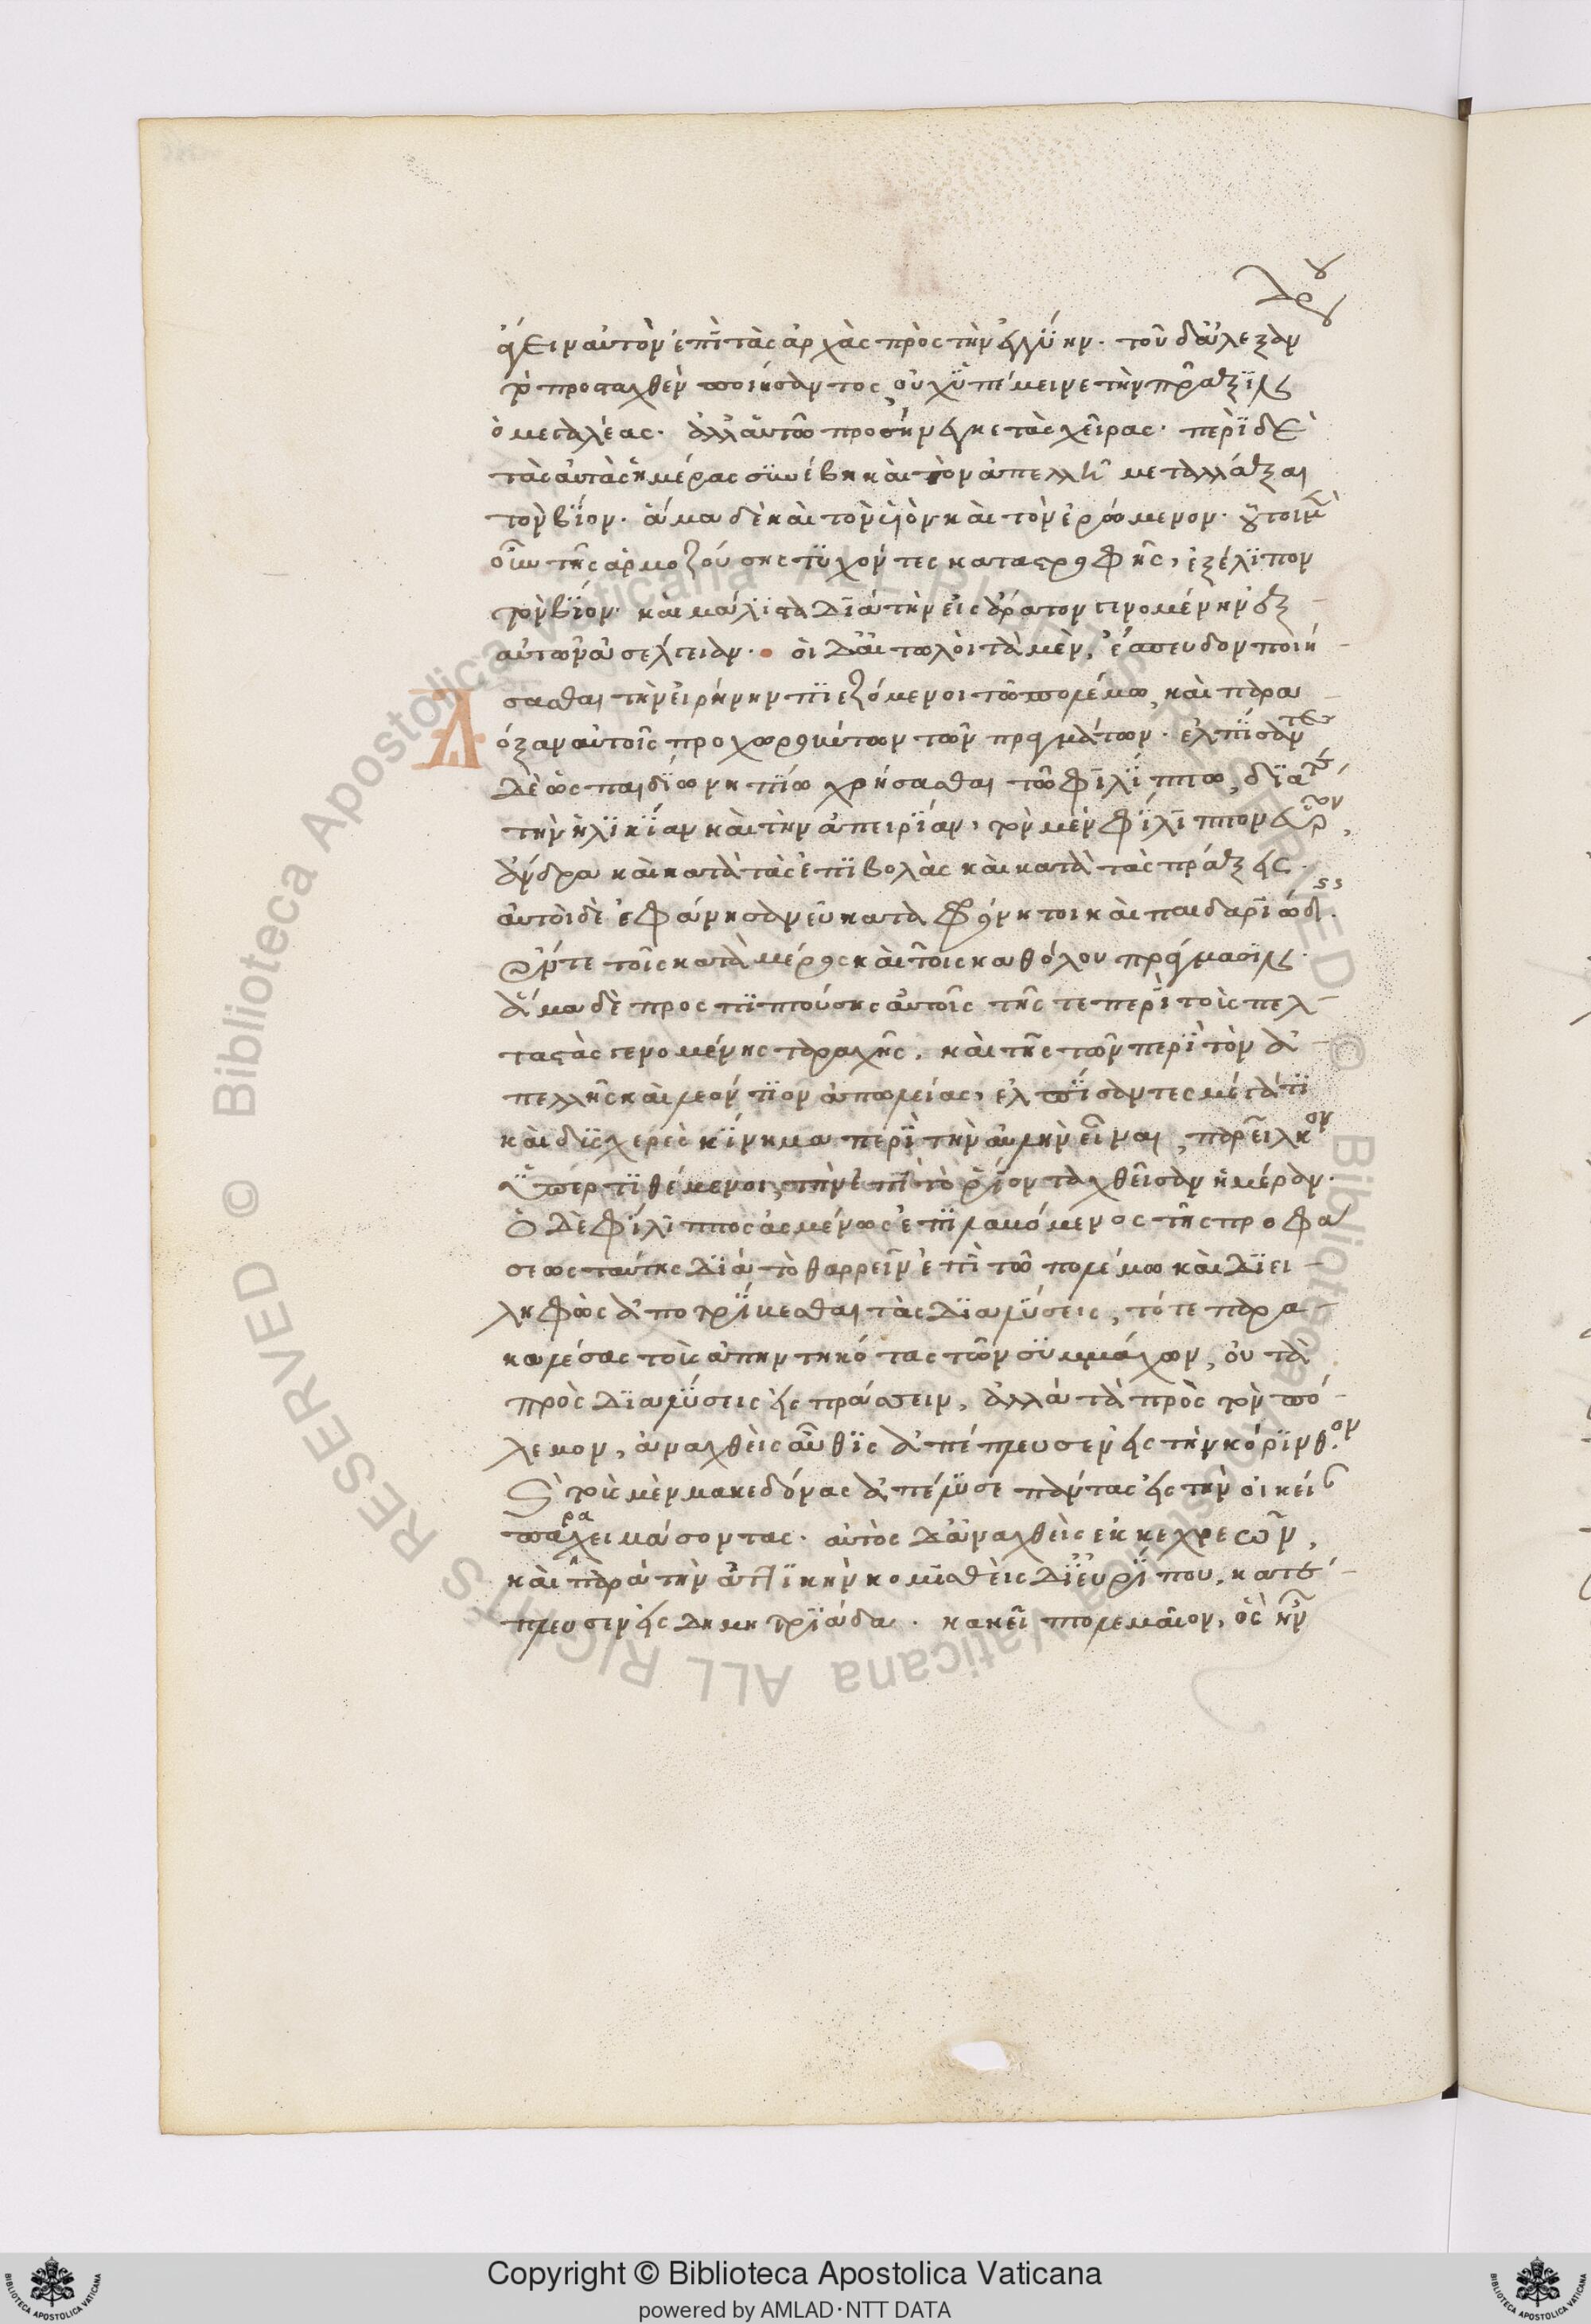 δρου
ἄγειν αὐτὸν ἐπὶ τὰς ἀρχὰς πρὸς τὴν ἐγγύην. τοῦ δ' ἀλεξαν
τὸ προσταχθὲν ποιήσαντος, οὐχ ὑπέμεινε τὴν πρᾶξιν
ὁ μεγαλέας. ἀλλ' αὑτῶ προσήνεγκε τὰς χεῖρας. περὶ δὲ
τὰς αὐτὰς ἡμέρας συνέβη καὶ τὸν ἀπελλῆν μεταλλάξαι
τὸν βίον. ἅμα δὲ καὶ τὸν υἱὸν καὶ τὸν ἐρώμενον. οὗτοι μὲν
οὖν τῆς ἁρμοζούσης τυχόντες καταστροφῆς, ἐξέλιπον
τὸν βίον. καὶ μάλιστα διὰ τὴν εἰς ἄρατον γινομένην ἐξ
αὐτῶν ἀσέλγειαν. οἱ δ' αἰτωλοὶ τὰ μὲν, ἔσπευδον ποιή
σασθαι τὴν εἰρήνην πιεζόμενοι τῶ πολέμω, καὶ παρα
Δόξαν αὐτοῖς προχωρούντων τῶν πραγμάτων. ἐλπίσαντες
δὲ ὡς παιδίω νηπίω χρήσασθαι τῶ φιλίππω, διά τε
τὴν ἡλικίαν καὶ τὴν ἀπειρίαν, τὸν μὲν φίλιππον εὗρον
ἄνδρα καὶ κατὰ τὰς ἐπιβολὰς καὶ κατὰ τὰς πράξεις.
αὐτοὶ δὲ ἐφάνησαν εὐκαταφρόνητοι καὶ παιδαριώδεις.
ἔν τε τοῖς κατὰ μέρος καὶ τοῖς καθόλου πράγμασιν.
ἅμα δὲ προσπιπτούσης αὐτοῖς τῆς τε περὶ τοὺς πελ
ταστὰς γενομένης ταραχῆς, καὶ τῆς τῶν περὶ τὸν ἀ
πελλῆν καὶ λεόντιον ἀπωλείας, ἐλπίσαντες μέγα τι
καὶ δυσχερὲς κίνημα περὶ τὴν αὐλὴν εἶναι, παρεῖλκον
ὑπερτιθέμενοι, τὴν ἐπὶ τὸ ῥίον ταχθεῖσαν ἡμέραν.
ὁ δὲ φίλιππος ἀσμένως ἐπιλαμόμενος τῆς προφα
σεως ταύτης διὰ τὸ θαρρεῖν ἐπὶ τῶ πολέμω καὶ διει
ληφὼς ἀποτρίμεσθαι τὰς διαλύσεις, τότε παρα
καλέσας τοὺς ἀπηντηκότας τῶν συμμάχων, οὐ τὰ
πρὸς διαλύσεις εἰς πράσσειν, ἀλλὰ τὰ πρὸς τὸν πό
λεμον, ἀναχθεὶς αὖθις ἀπέπλευσεν εἰς τὴν κόρινθον.
καὶ τοὺς μὲν μακεδόνας ἀπέλυσε πάντας εἰς τὴν οἰκείαν
παραχειμάσοντας. αὐτὸς δ' ἀναχθεὶς ἐκ κεχρεῶν,
καὶ παρὰ τὴν ἀττικὴν κομισθεὶς δι' εὐρίπου, κατέ
πλευσεν εἰς δημητριάδα. κακεῖ πτολεμαῖον, ὃς ἦν